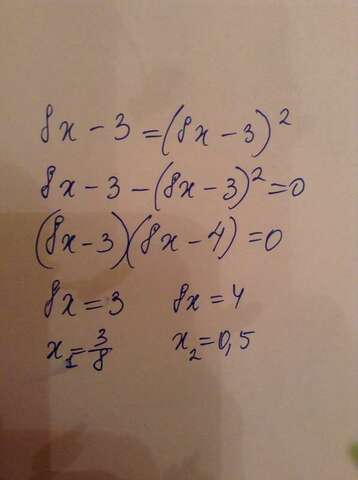 8x - 3 = (8x - 3)²
8x - 3 - (8x - 3)² = 0
(8x - 3)(8x - 4) = 0
8x = 3 8x = 4
x₁ = 3/8 x₂ = 0,5